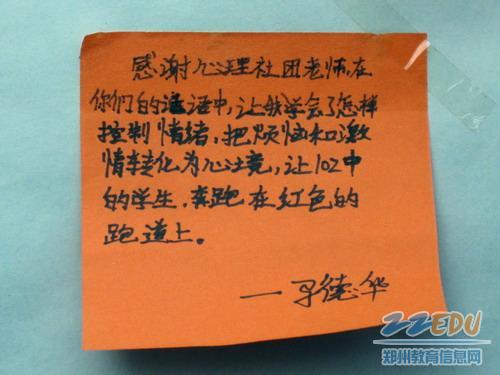 感谢心理社团老师,在
你们的话语中,让我学会了怎样
控制情绪,把烦恼和激
情转化为心境,让102中
的学生,奔跑在红色的
跑道上。
一 德华
ZZEDU
郑州教育信息网